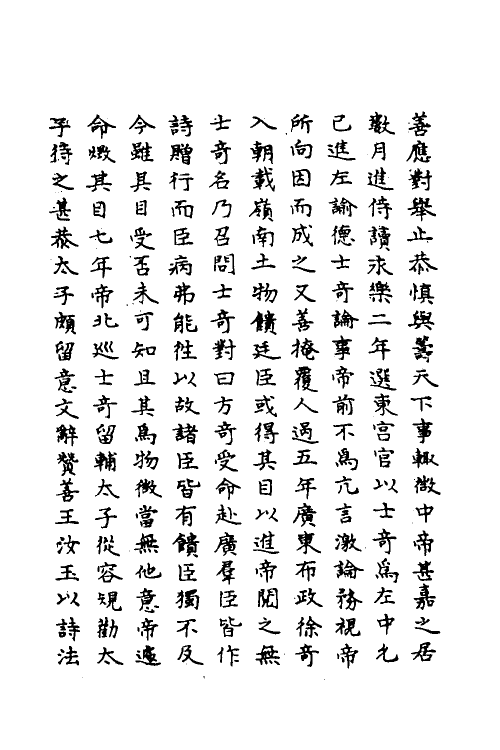 善應對舉止恭慎與籌天下事輒微中帝甚嘉之居
數月進侍讀永樂二年選東宮官以士奇為左中允
已進左諭德士奇論事帝前不為亢言激論務視帝
所向因而成之又善掩覆人過五年廣東布政徐奇
入朝載嶺南土物饋廷臣或得其目以進帝閱之無
士奇名乃召問士奇對曰方奇受命赴廣羣臣皆作
詩贈行而臣病弗能徃以故諸臣皆有饋臣獨不及
今雖具目受否未可知且其為物微當無他意帝遽
命燬其目七年帝北巡士奇留輔太子從容規勸太
子待之甚恭太子頗留意文辭贊善王汝玉以詩法